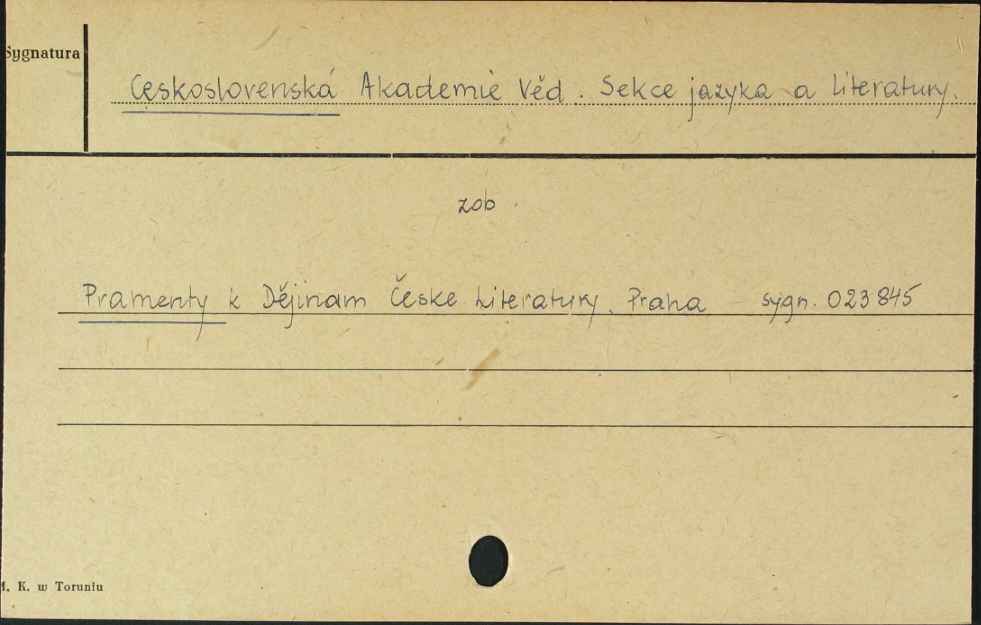 Sygnatura
Československá Akademie Věd. Sekce jazyka a literatury.
zob.
Pramenty k Dějinam Česke Literatury. Praha sygn. 023845
M. K. w Toruniu